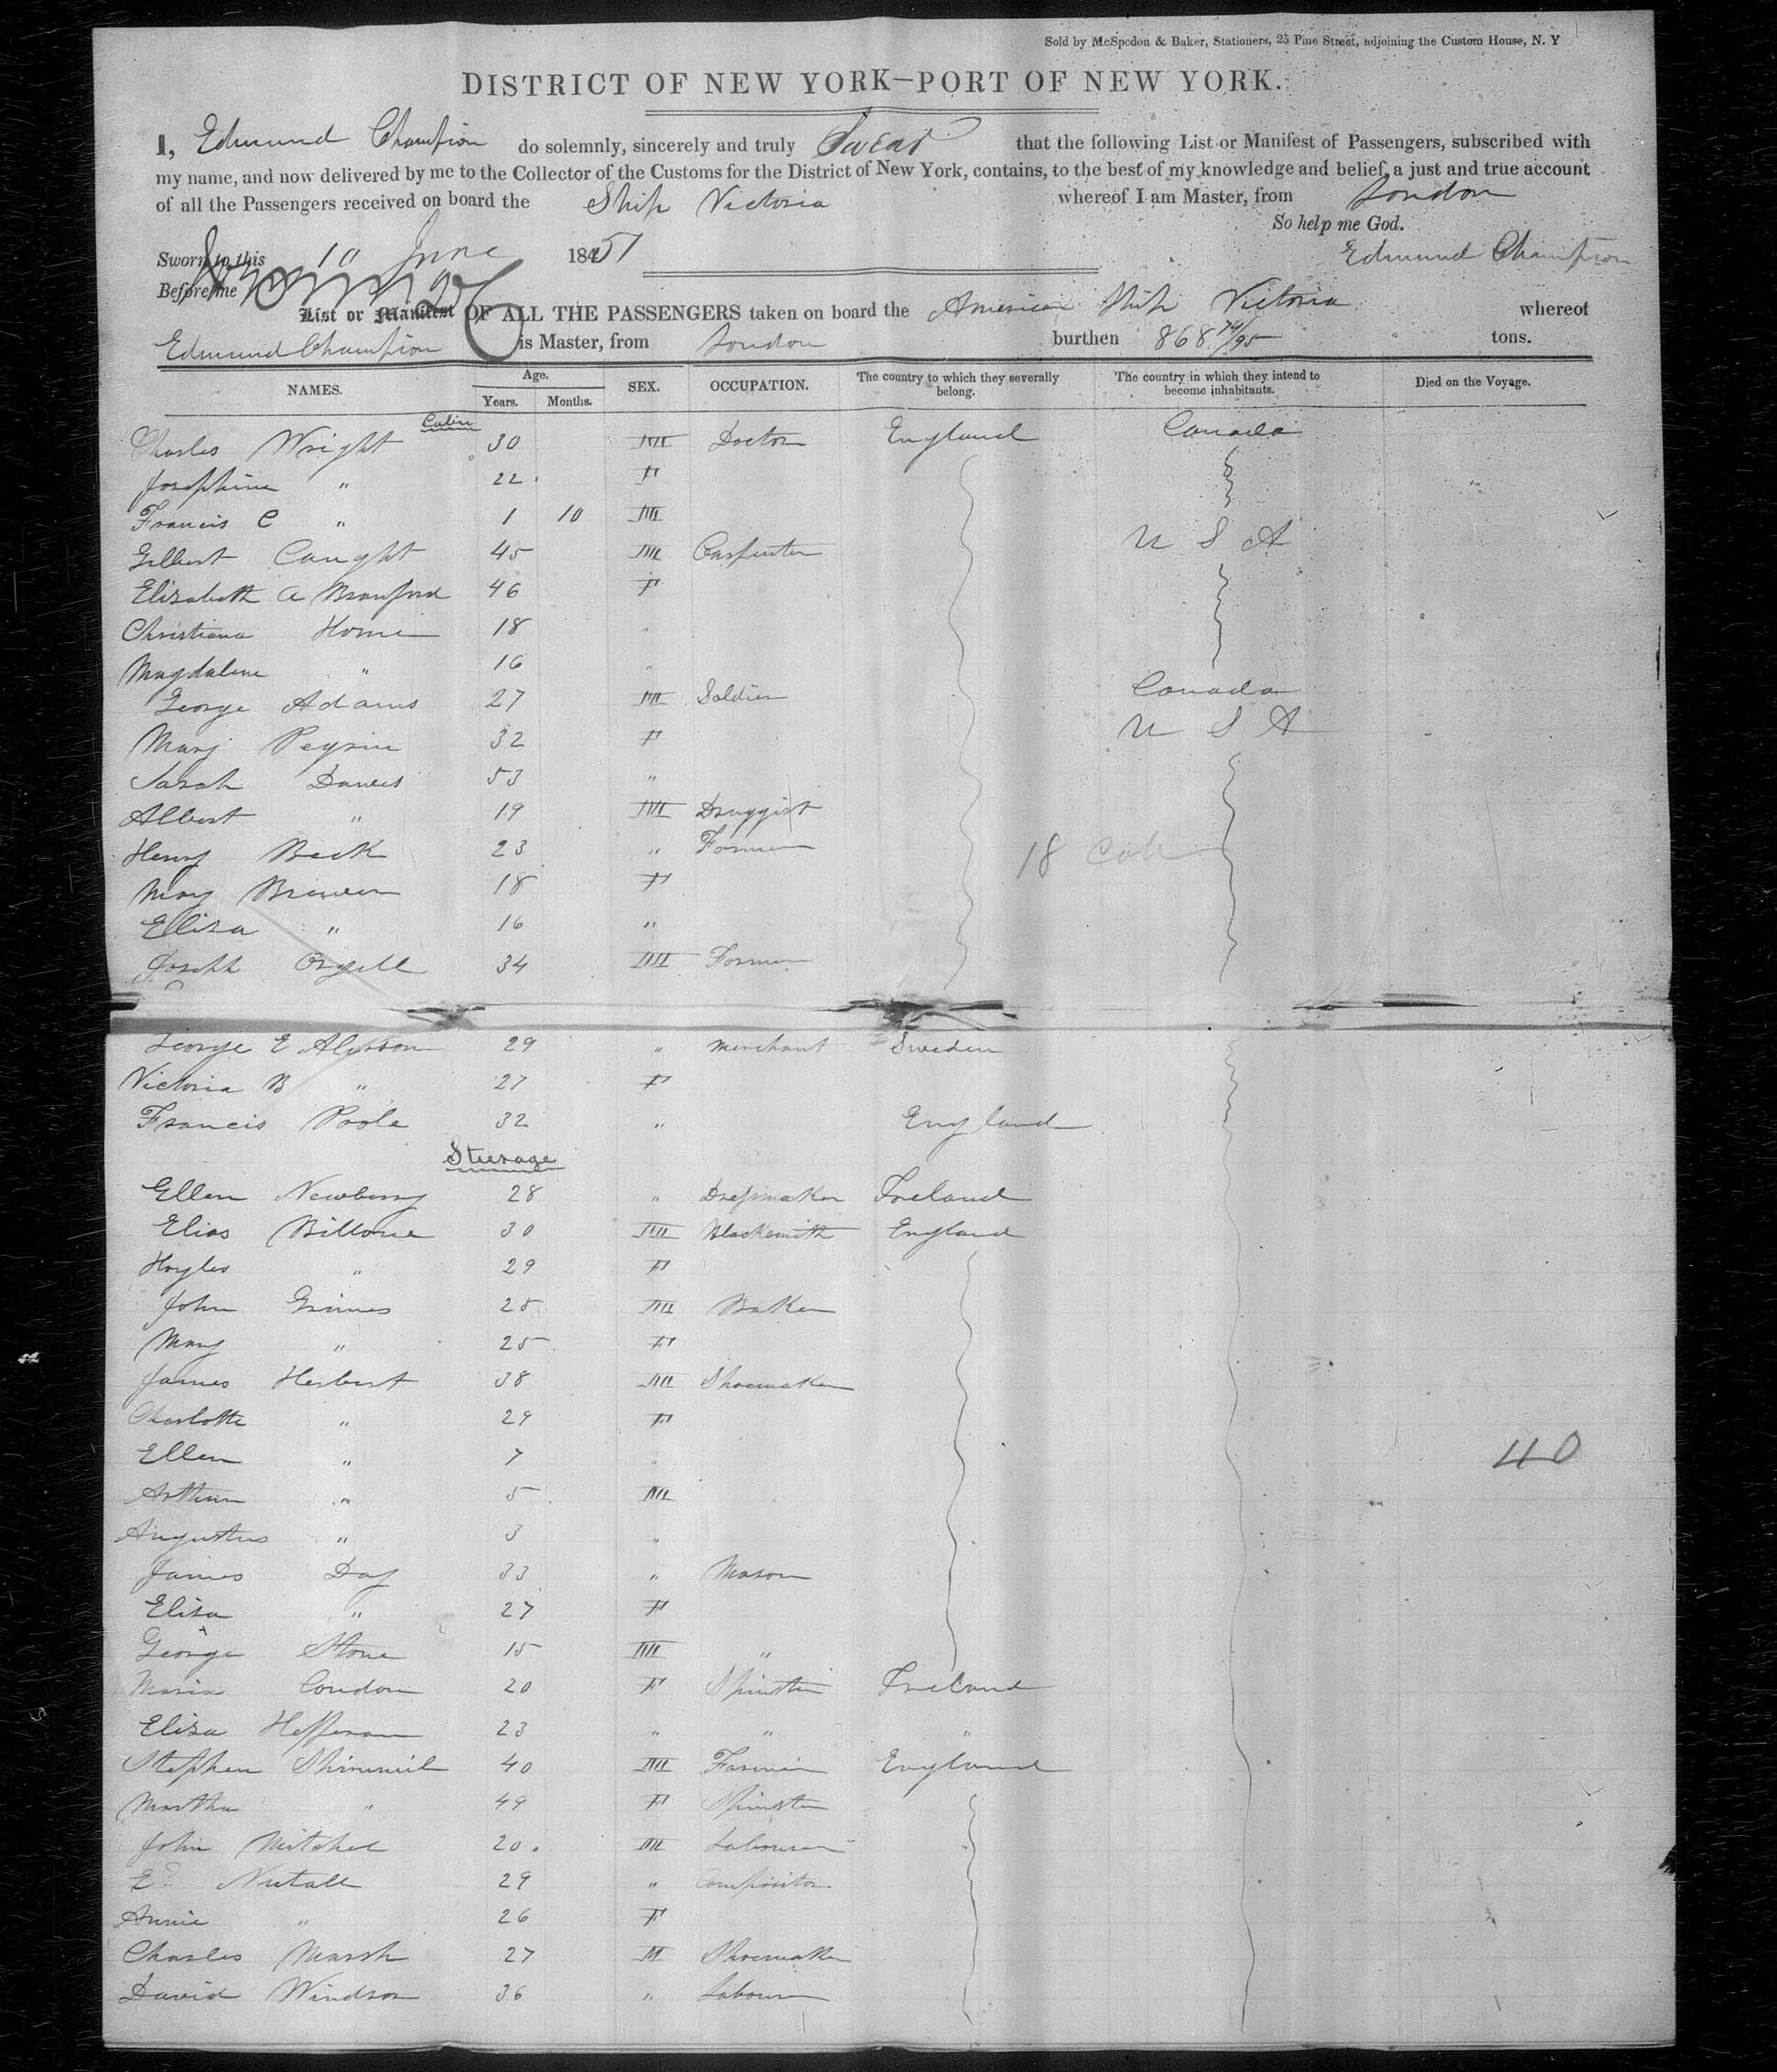 Sold by McSpedon & Baker, Stationers, 25 Pine Street, adjoining the Custom House, N. Y
DISTRICT OF NEW YORK—PORT OF NEW YORK.
I, Edmund Champion do solemnly, sincerely and truly Swear that the following List or Manifest of Passengers, subscribed with
my name, and now delivered by me to the Collector of the Customs for the District of New York, contains, to the best of my knowledge and belief, a just and true account
of all the Passengers received on board the Ship Victoria whereof I am Master, from London
So help me God.
Sworn to this 10 June 1851 Edmund Champion
Before me
List or Manifest OF ALL THE PASSENGERS taken on board the American Ship Victoria whereof
Edmund Champion is Master, from London burthen 868 74/95 tons.
NAMES. Age. Years. Months. SEX. OCCUPATION. The country to which they severally belong. The country in which they intend to become inhabitants. Died on the Voyage.
Cabin
Charles Wright 30 M Doctor England Canada
Josephine " 22 F
Francis C " 1 10 M
Gilbert Caught 45 M Carpenter U S A
Elizabeth A Branford 46 F
Christiana Horne 18 "
Magdalene " 16 "
George Adams 27 M Soldier Canada
Mary 32 F U S A
Sarah Dawes 53 "
Albert " 19 M Druggist
Henry Beck 23 " Farmer
18 Cab
Mary Brewer 18 F
Eliza " 16 "
Joseph Orgill 34 M Farmer
George E 29 " Merchant Sweden
Victoria B " 27 F
Francis Poole 32 " England
Steerage
Ellen Newberry 28 " Dressmaker Ireland
Elias Billowe 30 M Blacksmith England
" 29 F
John Grimes 25 M Baker
Mary " 25 F
James Herbert 38 M Shoemaker
Charlotte " 29 F
Ellen " 7 "
40
Arthur " 5 M
Augustus " 3 "
James Day 33 " Mason
Eliza " 27 F
George Stone 15 M "
Maria Condon 20 F Spinster Ireland
Eliza Heffernan 23 " " "
Stephen 40 M Farmer England
Martha " 49 F Spinster
John Mitchel 20 M Labourer
Nutall 29 " Compositor
Annie " 26 F
Charles Marsh 27 M Shoemaker
David Windsor 36 " Labourer